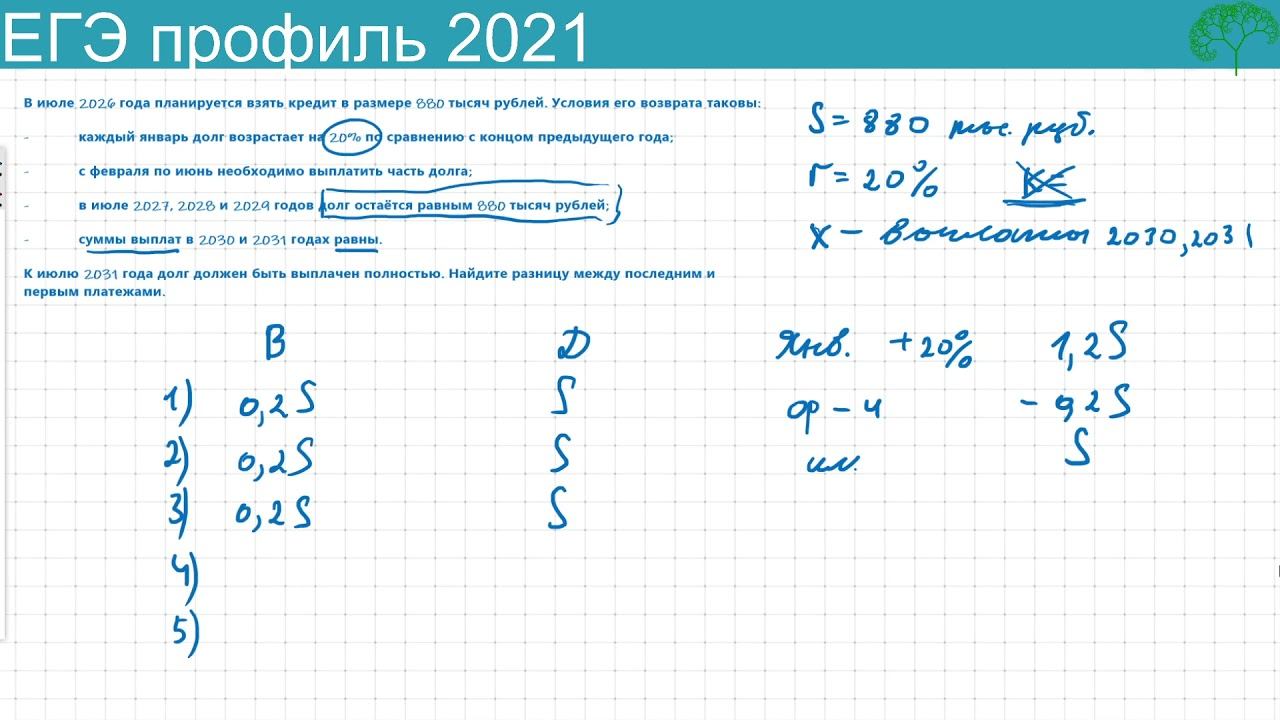 ЕГЭ профиль 2021
В июле 2026 года планируется взять кредит в размере 880 тысяч рублей. Условия его возврата таковы:
- каждый январь долг возрастает на 20% по сравнению с концом предыдущего года;
- с февраля по июнь необходимо выплатить часть долга;
- в июле 2027, 2028 и 2029 годов долг остаётся равным 880 тысяч рублей;
- суммы выплат в 2030 и 2031 годах равны.
К июлю 2031 года долг должен быть выплачен полностью. Найдите разницу между последним и
первым платежами.
S = 880 тыс. руб.
r = 20% K=
x – выплаты 2030, 2031
В D
1) 0,2S S
2) 0,2S S
3) 0,2S S
4)
5)
Янв. +20% 1,2S
ф – и - 0,2S
июл. S